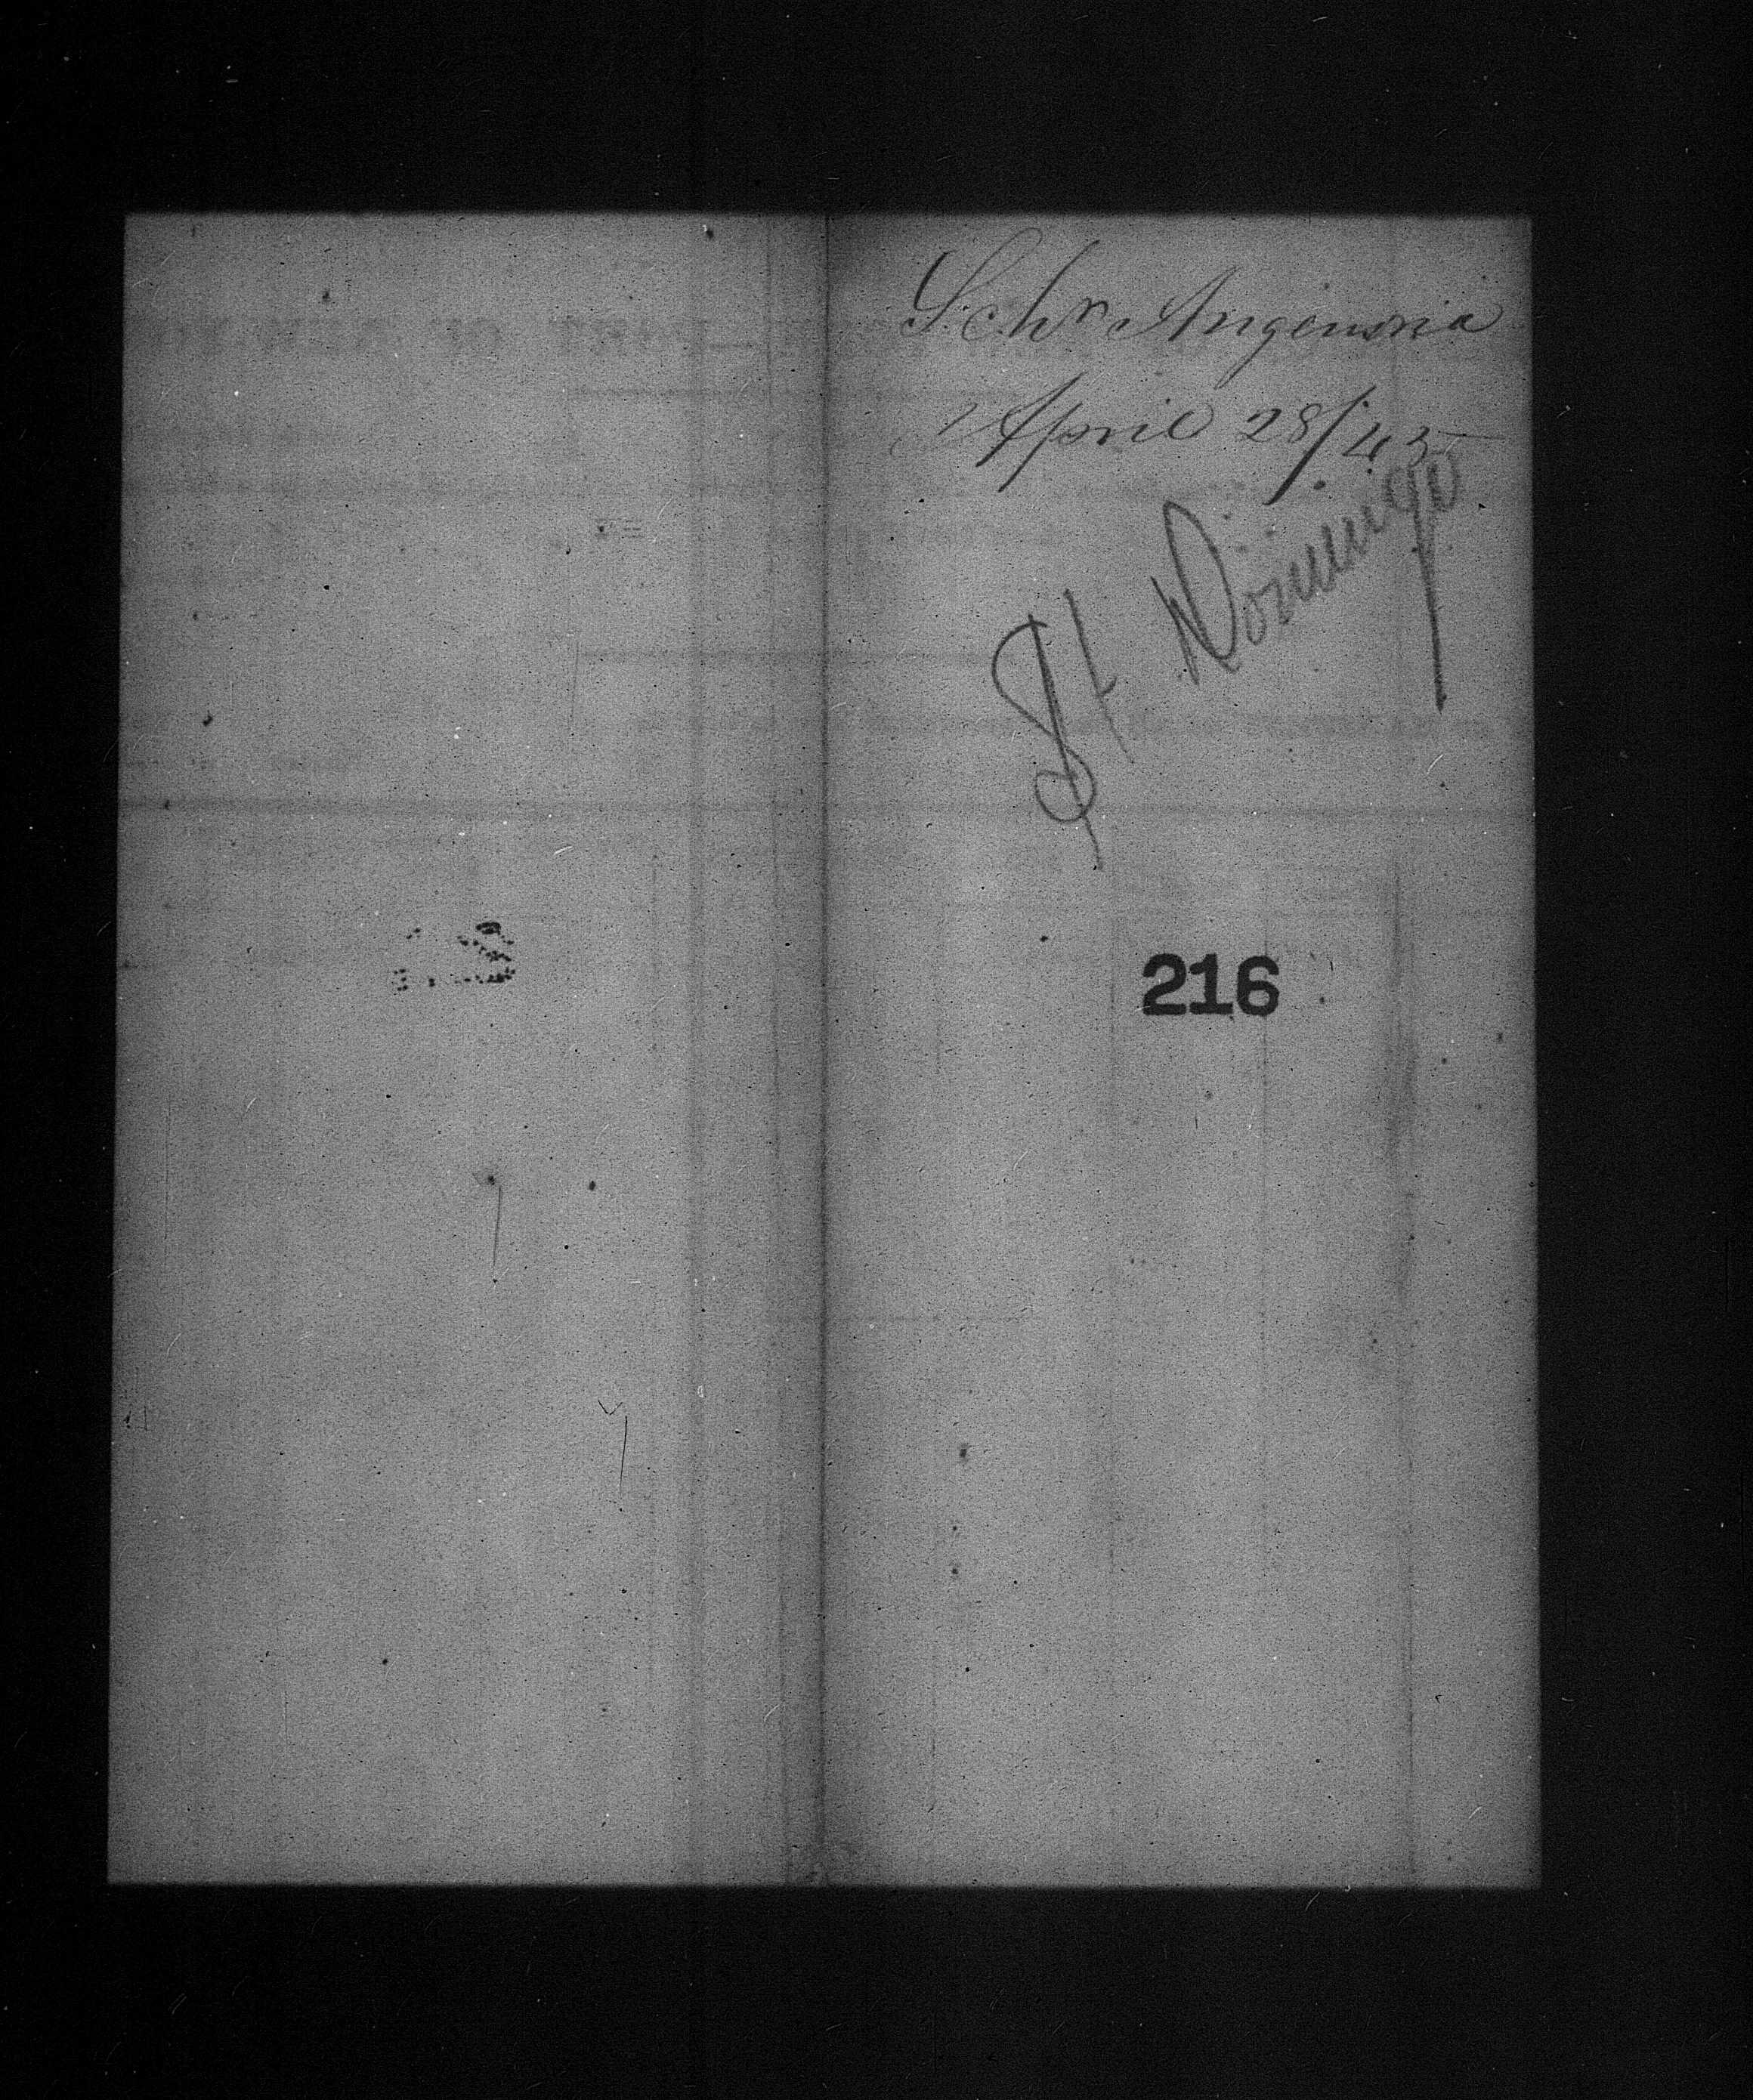 Schr Angenoria
April 28/45
St Domingo
216